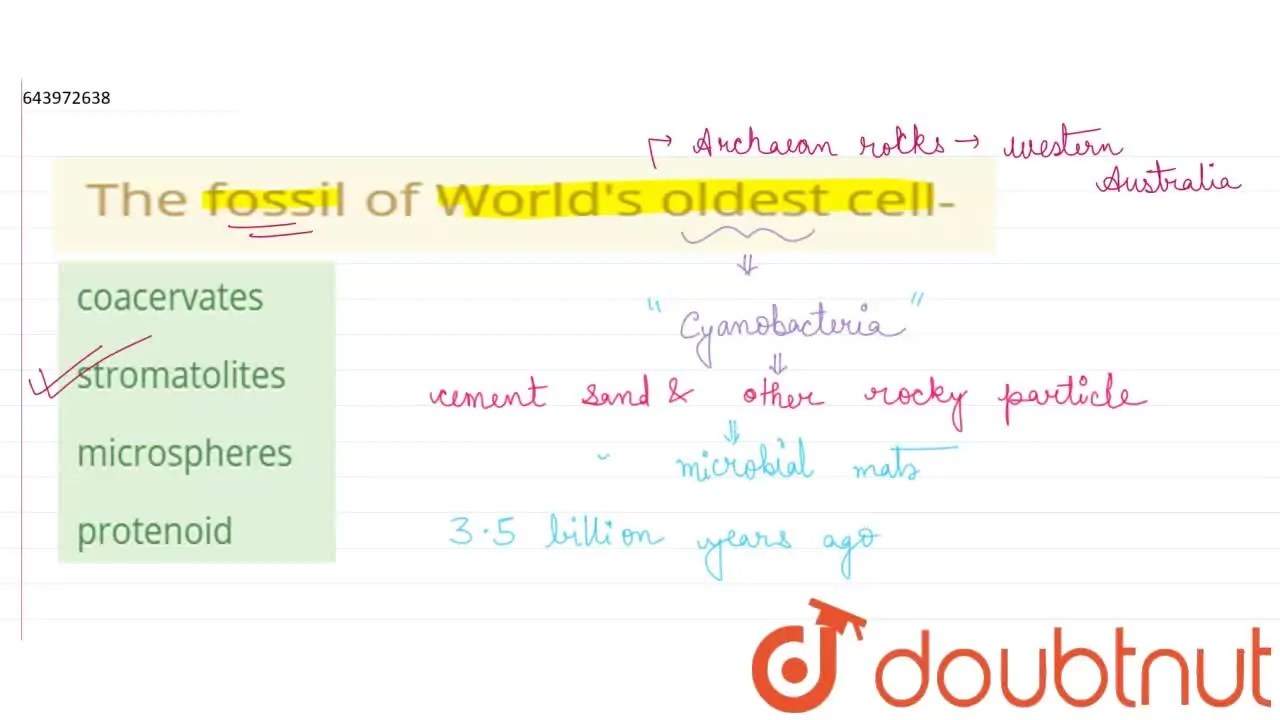 643972638
Archaean rocks → western
Australia
The fossil of World's oldest cell-
coacervates
stromatolites
microspheres
protenoid
⇓
" Cyanobacteria "
⇓
cement sand & other rocky particle
⇓
microbial mats
3.5 billion years ago
doubtnut